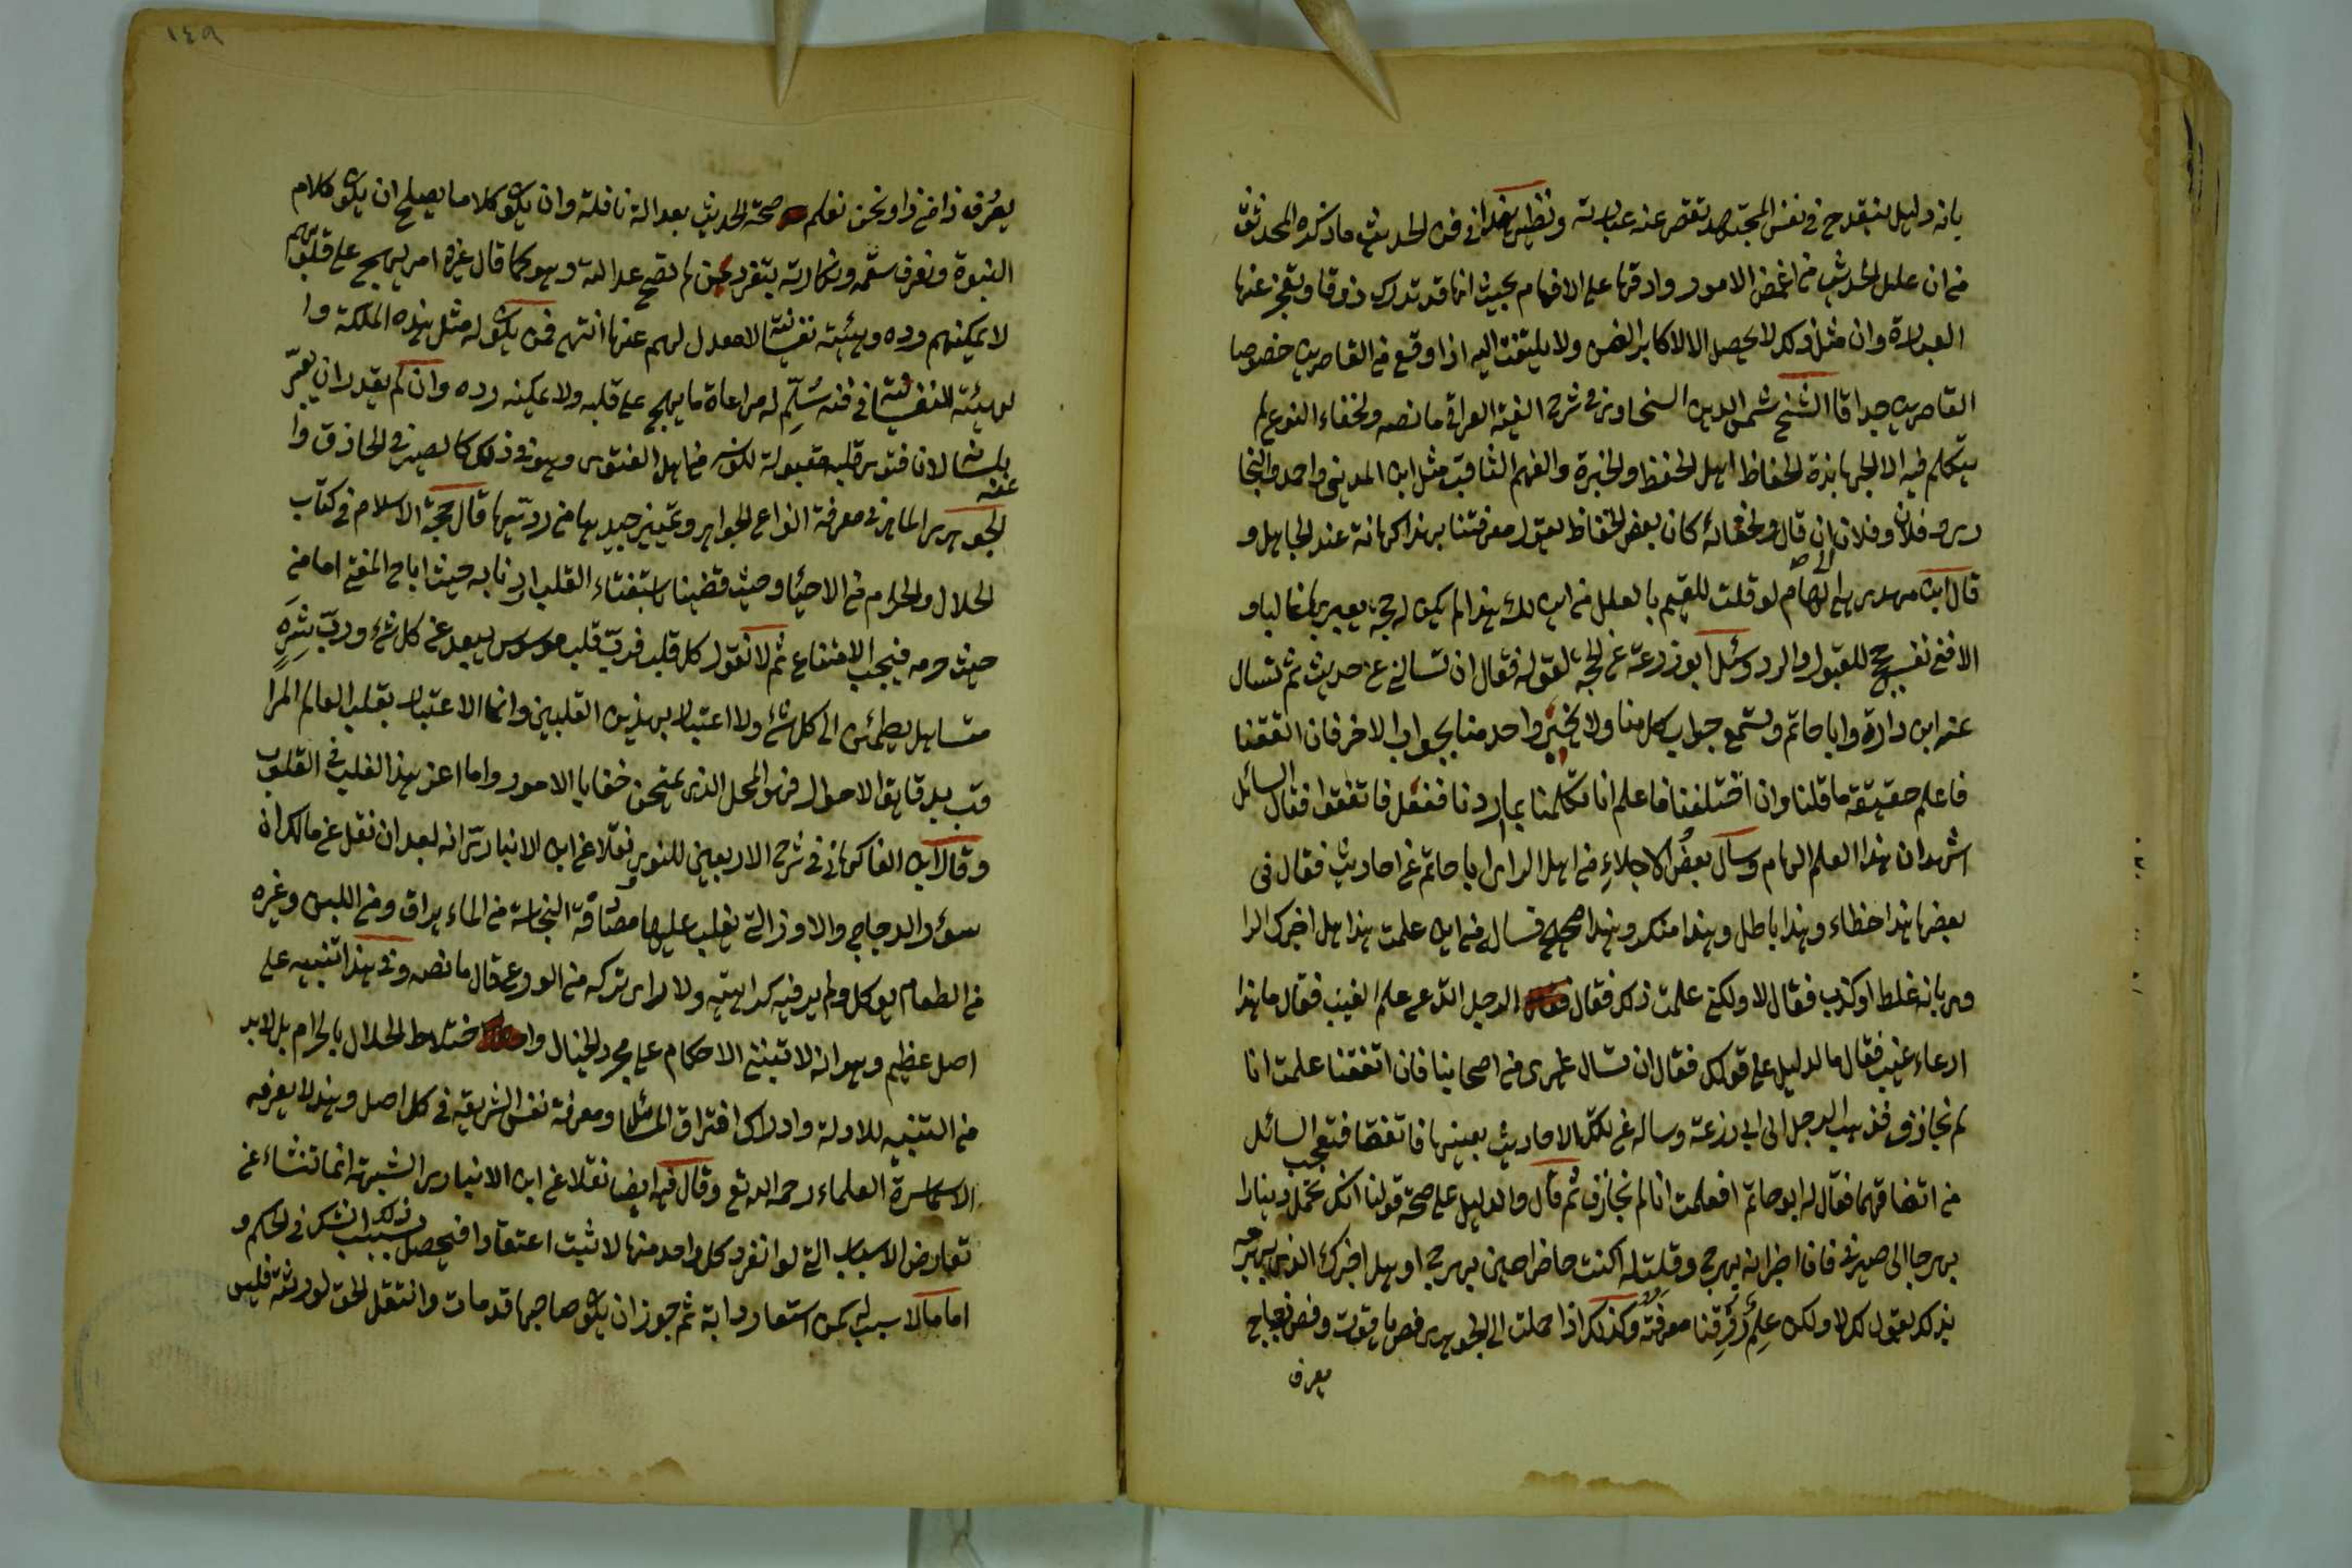 بانه دليل ينقدح في نفس المجتهد تقصر عنه عبارته ونظير هذا في فن الحديث ما ذكره المحدثون
من ان علل الحديث من اغمض الامور وادقها على الافهام بحيث انها قد تدرك ذوقا وتعجز عنها
العبارة وان مثل ذلك لا يحصل الا لاكابر الفن ولا يلتفت اليه اذا وقع من القاصرين خصوصا
القاصرين جدا قال الشيخ شمس الدين السخاوي في شرح الفية العراقي ما نصه ولخفاء النوع لم
يتكلم فيه الا الجهابذة الحفاظ اهل الحفظ والخبرة والفهم الثاقب مثل ابن المديني واحمد والبخا
ري وفلان وفلان الى ان قال ولخفائه كان بعض الحفاظ يقول معرفتنا بهذا كهانة عند الجاهل و
قال ابن مهدي هي الهام لو قلت للقيم بالعلل من اين لك هذا لم يكن له حجة يعبر بها غالبا و
الا ففي نفسه حجج للقبول والرد وسئل ابو زرعة عن الحجة لقوله فقال ان تسالني عن حديث ثم تسال
عنه ابن دارة وابا حاتم وتسمع جواب كل منا ولا تخبر واحد منا بجواب الاخر فان اتفقنا
فاعلم حقيقة ما قلنا وان اختلفنا فاعلم انا تكلمنا بما اردنا ففعل فاتفقوا فقال السائل
اشهد ان هذا العلم الهام وسال بعض الاجلاء من اهل الراى ابا حاتم عن احاديث فقال في
بعضها هذا خطاء وهذا باطل وهذا منكر وهذا صحيح فسال من اين علمت هذا هل اخبرك الرا
وى بانه غلط او كذب فقال لا ولكني علمت ذلك فقال الرجل اتدعي علم الغيب فقال ما هذا
ادعاء غيب فقال ما الدليل على قولك فقال ان تسال غيرى من اصحابنا فان اتفقنا علمت انا
لم نجازف فذهب الرجل الى ابي زرعة وساله عن تلك الاحاديث بعينها فاتفقا فتعجب السائل
من اتفاقهما فقال له ابو حاتم افعلمت انا لم نجازف ثم قال والدليل على صحة قولنا انك تحمل دينارا
بهرجا الى صيرفي فان اخبر انه بهرج وقلت له اكنت حاضرا حين بهرج او هل اخبرك الذي بهرجه
بذلك يقول لك لا ولكن علم رزقنا معرفته وكذلك اذا حملت الى الجوهرى فص ياقوت وفص زجاج
يعرف
١٤٩
يعرف ذا من ذا ونحن نعلم صحة الحديث بعدالة ناقلة وان يكون كلاما يصلح ان يكون كلام
النبوة ونعرف سقمه ونكارته بتفرد من لم تصح عدالته وهو كما قال غيره امر يهجم على قلوبهم
لا يمكنهم رده وهيئة نفسانية لا معدل لهم عنها انتهى فمن يكون له مثل هذه الملكة وا
لهيئة النفسانية في فنه سلم له مراعاة ما يهجم على قلبه ولا يمكنه رده وان لم يقدر ان يعبر
عنه بلسانه لان فتوى قلبه مقبولة لكونه من اهل الفتوى وهو في ذلك كالصيرفي الحاذق وا
لجوهرى الماهر في معرفة انواع الجواهر وتمييز جيدها من رديئها قال حجة الاسلام في كتاب
الحلال والحرام من الاحياء وحيث قضينا باستفتاء القلب اردنا به حيث اباح المفتي اما من
حيث حرمه فيجب الامتناع ثم لا نعول كل قلب فرب قلب موسوس يبعد عن كل شئ ورب شره
متساهل يطمئن الى كل شئ ولا اعتبار بهذين القلبين وانما الاعتبار بقلب العالم المرا
قب بدقايق الاحوال فهو المحل الذي يمتحن خفايا الامور واما اعز هذا القلب في القلوب
وقال ابن الفاكهاني في شرح الاربعين للنووي نقلا عن ابن الانباري انه بعد ان نقل عن مالك ان
سؤر الدجاج والاوز التي يغلب عليها مصادفة النجاسة من الماء يراق ومن اللبن وغيره
من الطعام يوكل ولم ير فيه كراهية ولا راى تركه من الورع قال ما نصه وفي هذا تنبيه على
اصل عظيم وهو انه لا تبتني الاحكام على مجرد الخيال واختلاط الحلال بالحرام بل لابد
من التنبيه للادلة وادراك افتراق المسائل ومعرفة نفس الشريعة في كل اصل وهذا لا يعرفه
الا سماسرة العلماء رحمه الله تع وقال فيه ايضا نقلا عن ابن الانبارى الشبهة انما تنشاء عن
تعارض الاسباب التي لو انفرد كل واحد منها لاثبت اعتقادا فيحصل بسبب ذلك الشك في الحكم و
اما ما لا سبب له كمن استعار دابة ثم جوز ان يكون صاحبها قد مات وانتقل الحق لورثته فليس